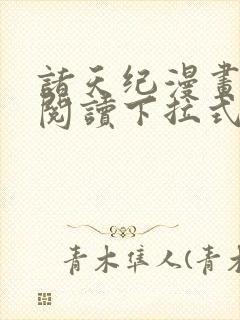 諸天纪漫畫
閱讀下拉式
青木隼人(青木